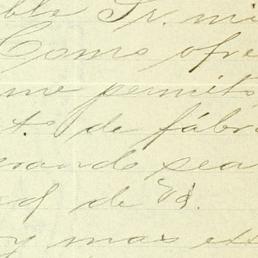 ble Sr. mi
Como ofre
me permito
ts. de fábr
erando sea
d de Vd.
y mas es